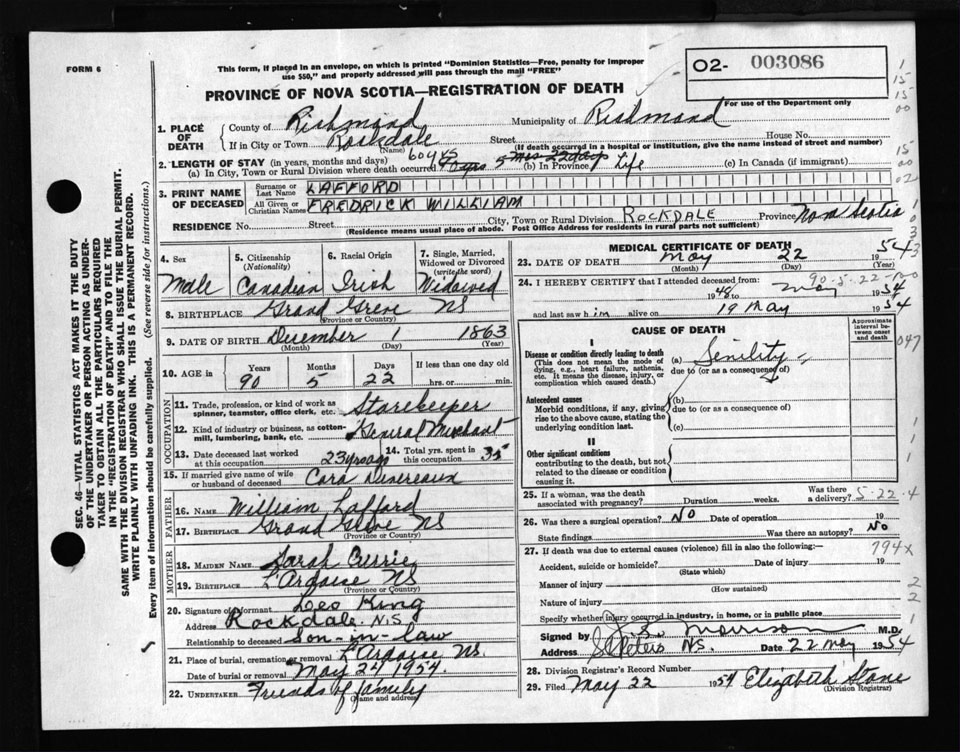 FORM 6
This form, if placed in an envelope, on which is printed "Dominion Statistics—Free, penalty for improper
use $50," and properly addressed will pass through the mail "FREE"
02- 003086
PROVINCE OF NOVA SCOTIA—REGISTRATION OF DEATH
For use of the Department only
1. PLACE OF DEATH
County of Richmond Municipality of Richmond
If in City or Town Rockdale Street House No.
(Name) (If death occurred in a hospital or institution, give the name instead of street and number)
2. LENGTH OF STAY (in years, months and days)
(a) In City, Town or Rural Division where death occurred 60 yrs 5 mos 22 days (b) In Province Life (c) In Canada (if immigrant)
3. PRINT NAME OF DECEASED
Surname or Last Name LAFFORD
All Given or Christian Names FREDRICK WILLIAM
RESIDENCE No. Street City, Town or Rural Division ROCKDALE Province Nova Scotia
(Residence means usual place of abode. Post Office Address for residents in rural parts not sufficient)
4. Sex
Male
5. Citizenship
(Nationality)
Canadian
6. Racial Origin
Irish
7. Single, Married,
Widowed or Divorced
(write the word)
Widowed
8. BIRTHPLACE Grand Greve NS
(Province or Country)
9. DATE OF BIRTH December 1 1863
(Month) (Day) (Year)
10. AGE
Years Months Days If less than one day old
90 5 22 hrs. or min.
OCCUPATION
11. Trade, profession, or kind of work as
spinner, teamster, office clerk, etc. Storekeeper
12. Kind of industry or business, as cotten-
mill, lumbering, bank, etc. General Merchant
13. Date deceased last worked
at this occupation 23 yrs ago
14. Total yrs. spent in
this occupation 35
15. If married give name of wife
or husband of deceased Cora Devereaux
FATHER
16. Name William Lafford
17. Birthplace Grand Greve NS
(Province or Country)
MOTHER
18. MAIDEN NAME Sarah Currie
19. BIRTHPLACE L'Ardoise NS
(Province or Country)
20. Signature of informant Leo King
Address Rockdale N.S.
Relationship to deceased Son-in-law
21. Place of burial, cremation or removal L'Ardoise NS.
Date of burial or removal May 24 1954.
22. UNDERTAKER Friends of family
(Name and address)
MEDICAL CERTIFICATE OF DEATH
23. DATE OF DEATH May 22 1954
(Month) (Day) (Year)
90-5-22
24. I HEREBY CERTIFY that I attended deceased from:
1948 to May 1954
and last saw him alive on 19 May 1954
CAUSE OF DEATH
Approximate
interval be-
tween onset
and death
I
Disease or condition directly leading to death
(This does not mean the mode of
dying, e.g., heart failure, asthenia,
etc. It means the disease, injury, or
complication which caused death.)
(a) Senility
due to (or as a consequence of)
Antecedent causes
Morbid conditions, if any, giving
rise to the above cause, stating the
underlying condition last.
(b)
due to (or as a consequence of)
(c)
II
Other significant conditions
contributing to the death, but not
related to the disease or condition
causing it.
25. If a woman, was the death
associated with pregnancy? Duration weeks. Was there
a delivery? 5-22-4
26. Was there a surgical operation? No Date of operation 19
State findings Was there an autopsy? No
27. If death was due to external causes (violence) fill in also the following:— 794x
Accident, suicide or homicide? Date of injury 19
(State which)
Manner of injury
(How sustained)
Nature of injury
Specify whether injury occurred in industry, in home, or in public place
Signed by Morrison M.D.
Address St Peters NS. Date 22 May 1954
28. Division Registrar's Record Number
29. Filed May 22 1954 Elizabeth Stone
(Division Registrar)
SEC. 46—VITAL STATISTICS ACT MAKES IT THE DUTY
OF THE UNDERTAKER OR PERSON ACTING AS UNDER-
TAKER TO OBTAIN ALL THE PARTICULARS REQUIRED
IN THE "REGISTRATION OF DEATH" AND TO FILE THE
SAME WITH THE DIVISION REGISTRAR WHO SHALL ISSUE THE BURIAL PERMIT.
WRITE PLAINLY WITH UNFADING INK. THIS IS A PERMANENT RECORD.
Every item of information should be carefully supplied. (See reverse side for instructions.)
1
15
15
00
15
00
02
1
0
3
3
047
1
1
1
2
2
1